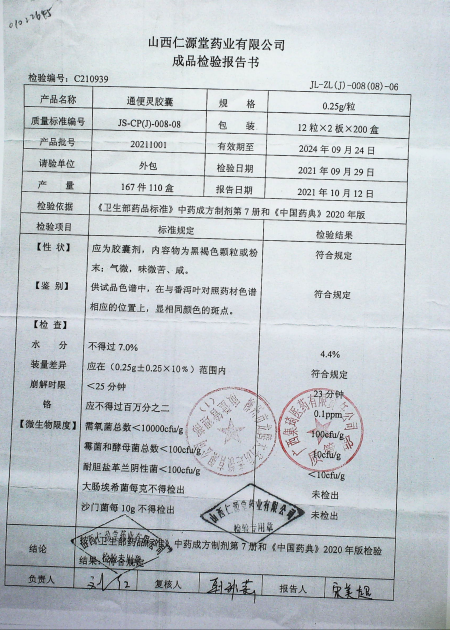 山西仁源堂药业有限公司
成品检验报告书
检验编号：C210939
JL-ZL(J)-008(08)-06
产品名称 通便灵胶囊 规 格 0.25g/粒
质量标准编号 JS-CP(J)-008-08 包 装 12粒×2板×200盒
产品批号 20211001 有效期至 2024年09月24日
请验单位 外包 检验日期 2021年09月29日
产 量 167件110盒 报告日期 2021年10月12日
检验依据 《卫生部药品标准》中药成方制剂第7册和《中国药典》2020年版
检验项目 标准规定 检验结果
【性 状】 应为胶囊剂，内容物为黑褐色颗粒或粉 符合规定
末；气微，味微苦、咸。
【鉴 别】 供试品色谱中，在与番泻叶对照药材色谱 符合规定
相应的位置上，显相同颜色的斑点。
【检 查】
水 分 不得过7.0% 4.4%
装量差异 应在（0.25g±0.25×10%）范围内 符合规定
崩解时限 <25分钟 23分钟
铬 应不得过百万分之二 0.1ppm
【微生物限度】 需氧菌总数<10000cfu/g 100cfu/g
霉菌和酵母菌总数<100cfu/g 10cfu/g
耐胆盐革兰阴性菌<100cfu/g <10cfu/g
大肠埃希菌每克不得检出 未检出
沙门菌每10g不得检出 未检出
山西仁源堂药业有限公司
检验专用章
结论 《卫生部药品标准》中药成方制剂第7册和《中国药典》2020年版检验
结果，符合规定
检验专用章
负责人 复核人 报告人